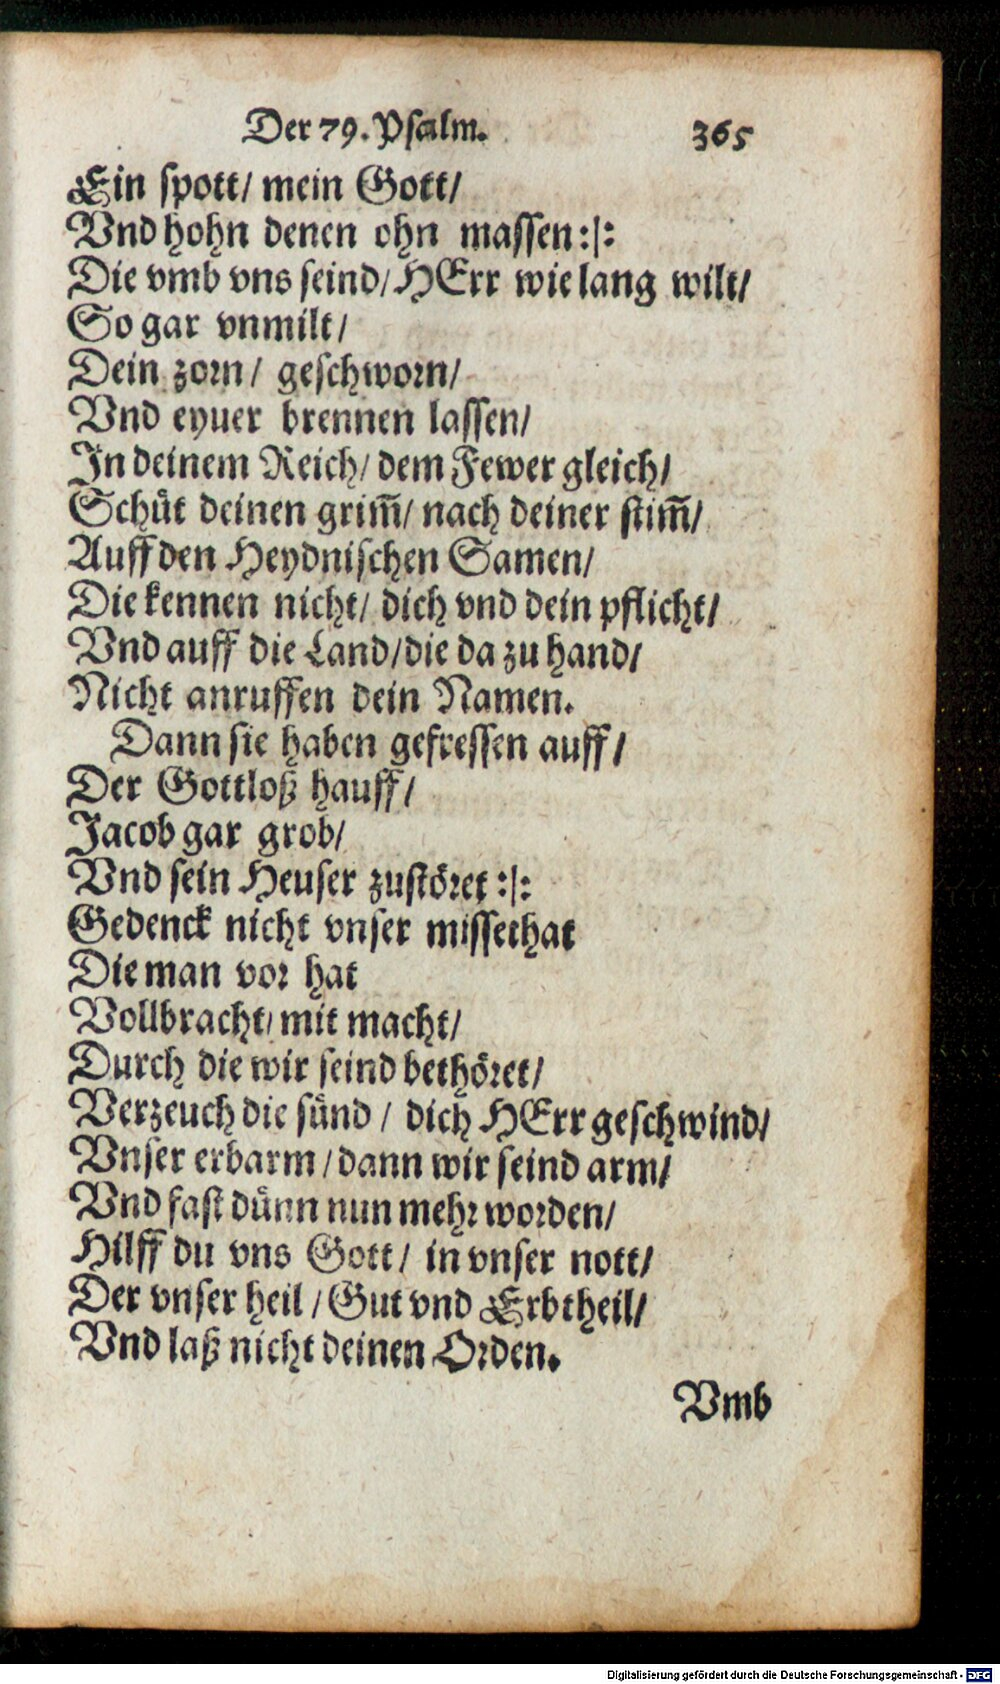 Der 79. Psalm. 365
Ein spott/ mein Gott/
Vnd hohn denen ohn massen:|:
Die vmb vns seind/ HErr wie lang wilt/
So gar vnmilt/
Dein zorn/ geschworn/
Vnd eyuer brennen lassen/
In deinem Reich/ dem Fewer gleich/
Schüt deinen grim̃/ nach deiner stim̃/
Auff den Heydnischen Samen/
Die kennen nicht/ dich vnd dein pflicht/
Vnd auff die Land/ die da zu hand/
Nicht anruffen dein Namen.
Dann sie haben gefressen auff/
Der Gottloß hauff/
Jacob gar grob/
Vnd sein Heuser zustöret :|:
Gedenck nicht vnser missethat
Die man vor hat
Vollbracht/ mit macht/
Durch die wir seind bethöret/
Verzeuch die sünd / dich HErr geschwind/
Vnser erbarm / dann wir seind arm/
Vnd fast dünn nun mehr worden/
Hilff du vns Gott/ in vnser nott/
Der vnser heil / Gut vnd Erbtheil/
Vnd laß nicht deinen Orden.
Vmb
Digitalisierung gefördert durch die Deutsche Forschungsgemeinschaft - DFG